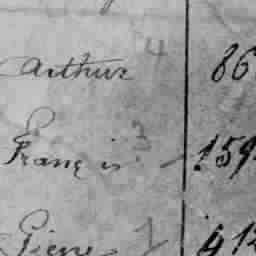 Arthur 4 86
François 3 159
Pierre 1 412